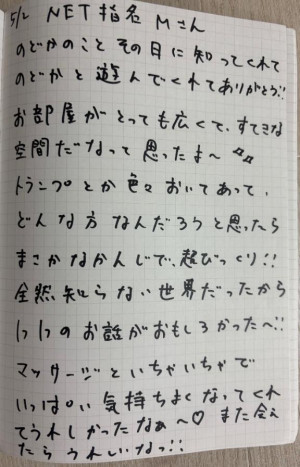 5/2 NET指名 Mさん
のどかのこと その日に知ってくれて
のどかと遊んでくれてありがとう!!
お部屋がとっても広くて、すてきな
空間だなって思ったよ〜
トランプとか色々おいてあって、
どんな方なんだろうと思ったら
まさかなかんじで、超びっくり!!
全然知らない世界だったから
1つ1つのお話がおもしろかったへ!!
マッサージといちゃいちゃで
いっぱい気持ちよくなってくれ
てうれしかったなぁ〜♡ また会え
たらうれしいなっ!!